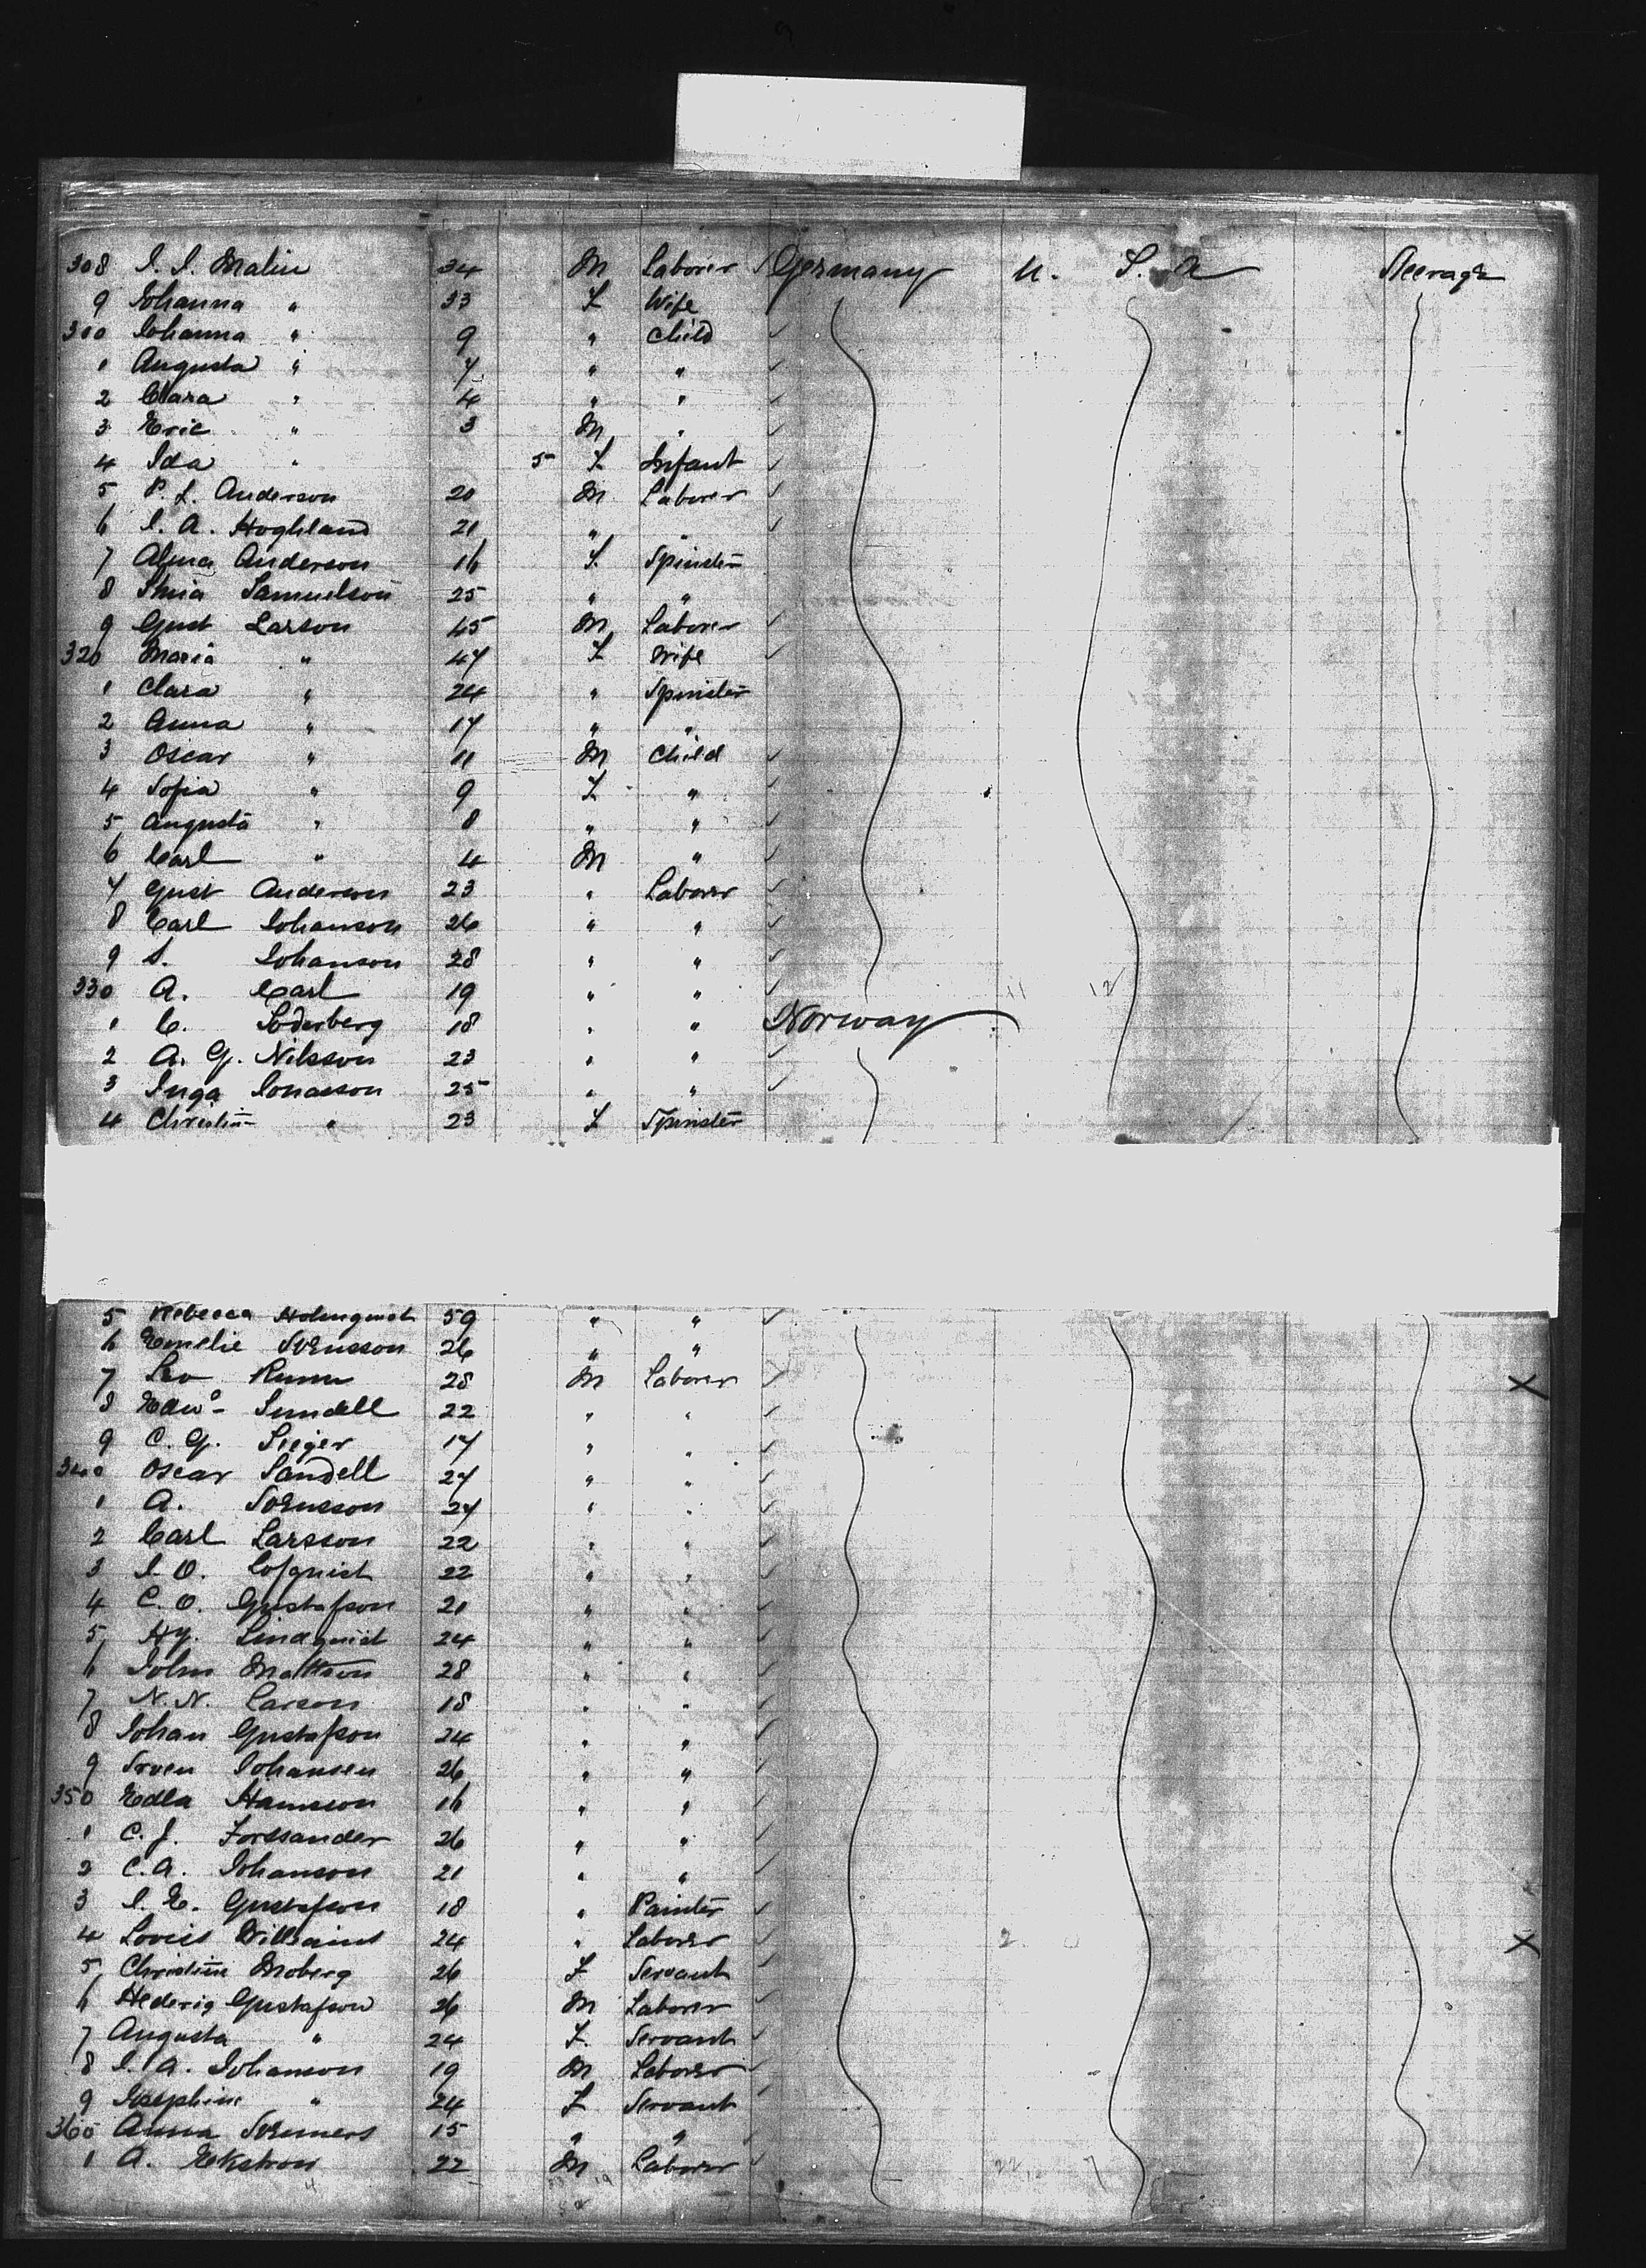 308 I. I. Malin 34 M Laborer Germany U. S. A Steerage
9 Johanna " 33 F Wife
310 Johanna " 9 " Child
1 Augusta " 7 " "
2 Clara " 4 " "
3 Eric " 3 M "
4 Ida " 5 F Infant
5 P. L. Anderson 20 M Laborer
6 I. A. Hoghland 21 " "
7 Alma Anderson 16 F Spinster
8 Samuelson 25 " "
9 Gust Larson 45 M Laborer
320 Maria " 47 F Wife
1 Clara " 24 " Spinster
2 Anna " 17 " "
3 Oscar " 11 M Child
4 Sofia " 9 F "
5 Augusta " 8 " "
6 Carl " 4 M "
7 Gust Anderson 23 " Laborer
8 Carl Johanson 26 " "
9 S. Johanson 28 " "
330 A. Carl 19 " "
1 C. Soderberg 18 " " Norway
2 A. G. Nilsson 23 " "
3 Inga Jonasson 25 " "
4 Christin " 23 F Spinster
5 Rebecca Holmquist 59 " "
6 Emelie Svensson 26 " "
7 Leo 28 M Laborer X
8 Edwd Sundell 22 " "
9 C. G. 17 " "
340 Oscar Sandell 27 " "
1 A. Svensson 27 " "
2 Carl Larsson 22 " "
3 I. O. Lofquist 22 " "
4 C. O. Gustafson 21 " "
5 Hy. Lindquist 24 " "
6 John Mattson 28 " "
7 N. N. Carson 18 " "
8 Johan Gustafson 24 " "
9 Sven Johansen 26 " "
350 Edla Hansson 16 " "
1 C. J. Forssander 26 " "
2 C. A. Johanson 21 " "
3 I. E. Gustafson 18 " Painter
4 24 " Laborer X
5 Christine Moberg 26 F Servant
6 Hedvig Gustafson 26 M Laborer
7 Augusta " 24 F Servant
8 I. A. Johanson 19 M Laborer
9 Josephine " 24 F Servant
360 Anna 15 " "
1 A. Ekstrom 22 M Laborer